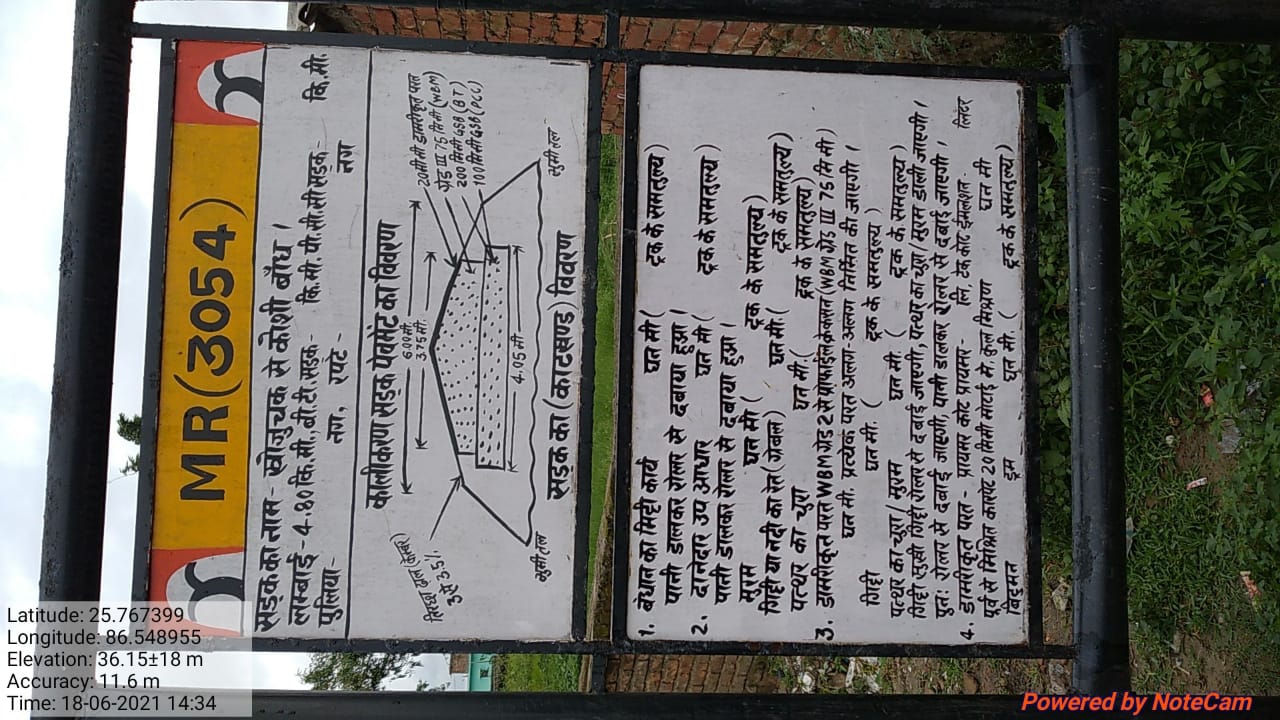 MR(3054)
सड़क का नाम- खोजुचक से कोशी बाँध ।
लम्बाई - 4.80 कि.मी., बी.टी.सड़क- कि.मी. पी.सी.सी सड़क- कि.मी.
पुलिया- नग, रपटे - नग
कालीकरण सड़क पेवमेंट का विवरण
6.00 मी.
3.75 मी.
20 मीमी डामरीकृत परत
ग्रेड III 75 मि मी (WBM)
200 मिमी GSB (BT)
100 मिमी GSB (PCC)
3 से 3.5%
4.05 मी
भुमी तल
भुमी तल
सड़क का (काटखण्ड) विवरण
1. बंधान का मिट्टी कार्य घन मी ( ट्रक के समतुल्य )
पानी डालकर रोलर से दबाया हुआ ।
2. दानेदार उप आधार घन मी ( ट्रक के समतुल्य )
पानी डालकर रोलर से दबाया हुआ ।
मुरम घन मी ( ट्रक के समतुल्य )
गिट्टी या नदी का रेत (ग्रेवल) घन मी ( ट्रक के समतुल्य )
पत्थर का चुरा घन मी ( ट्रक के समतुल्य )
3. डामरीकृत परत WBM ग्रेड 2 से WBM ग्रेड III 75 मि मी )
घन मी. प्रत्येक परत अलग अलग निर्मित की जाएगी ।
गिट्टी घन मी. ( ट्रक के समतुल्य )
पत्थर का चुरा / मुरम घन मी ( ट्रक के समतुल्य )
गिट्टी सुखी गिट्टी रोलर से दबाई जाएगी, पत्थर का चुरा / मुरम डाली जाएगी ।
पुनः रोलर से दबाई जाएगी, पानी डालकर रोलर से दबाई जाएगी ।
4. डामरीकृत परत - प्रायमर कोट प्रायमर- लि, टेक कोट ईमलशन- लिटर
पुर्व से मिश्रित कारपेट 20 मिमी मोटाई में, कुल मिश्रण घन मी
बिटुमन ड्रम घन मी ( ट्रक के समतुल्य )
Latitude: 25.767399
Longitude: 86.548955
Elevation: 36.15±18 m
Accuracy: 11.6 m
Time: 18-06-2021 14:34
Powered by NoteCam